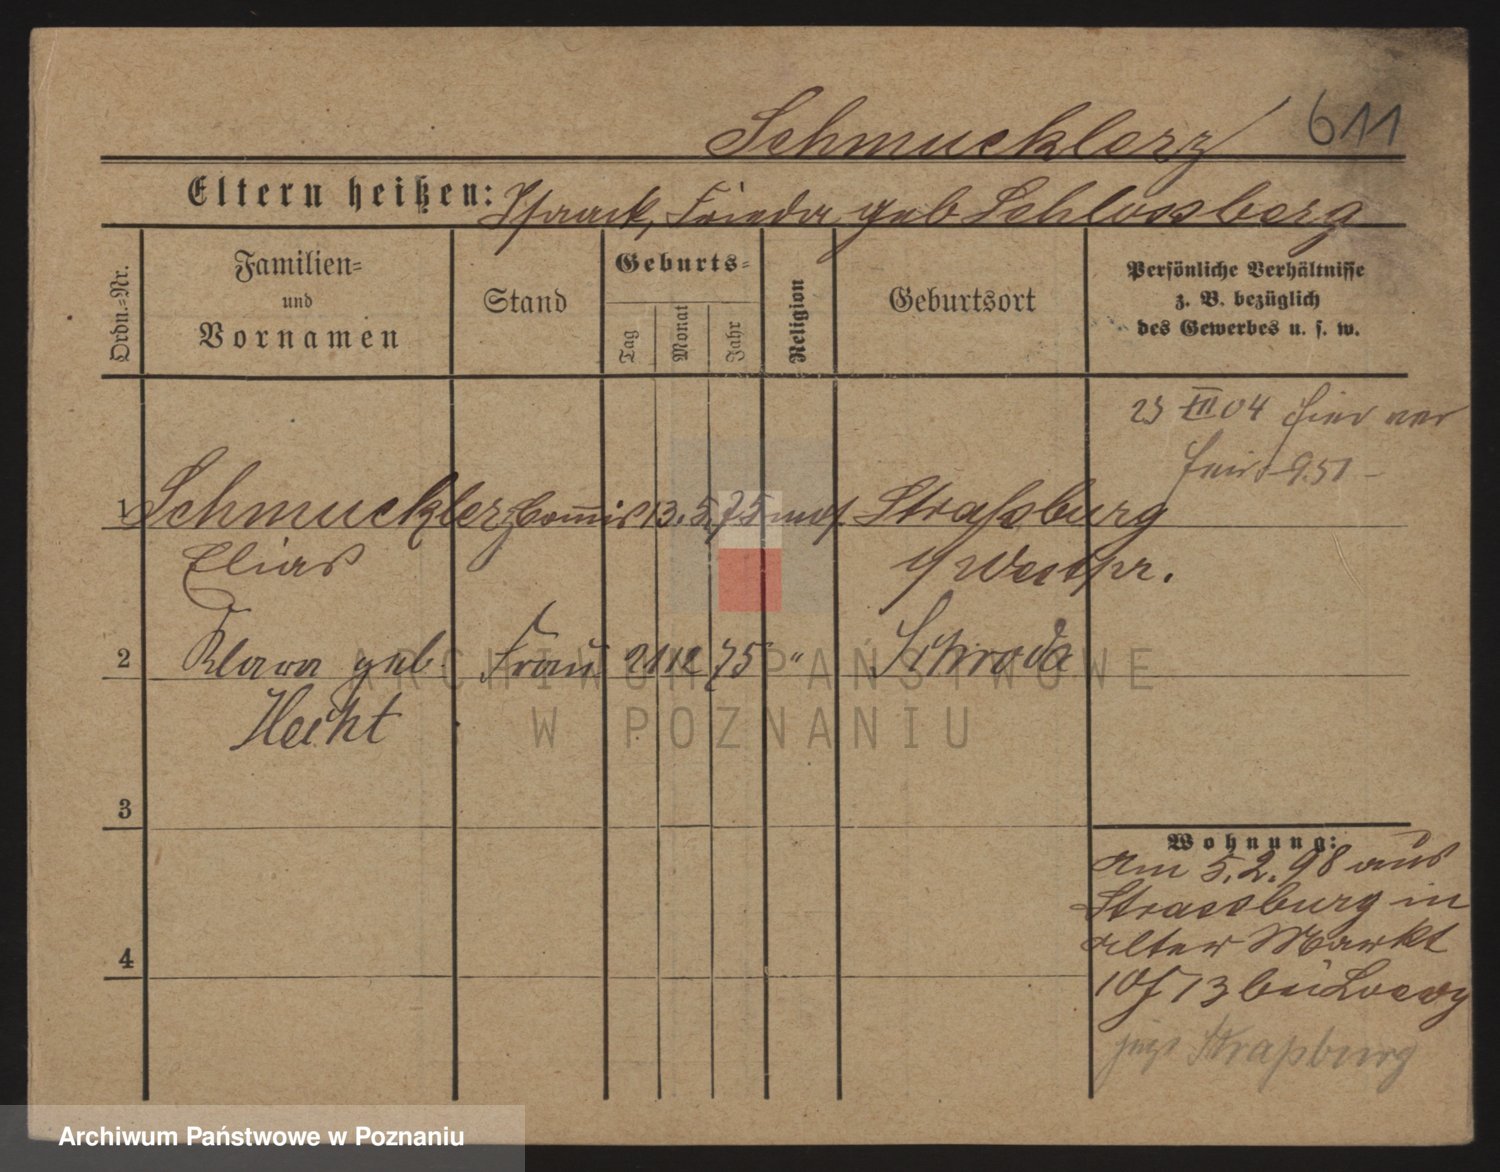 Schmucklerz 611
Eltern heißen: Isaack, Frieda geb Schlossberg
Ordn.=Nr.
Familien=
und
Vornamen
Stand
Geburts=
Tag
Monat
Jahr
Religion
Geburtsort
Persönliche Verhältnisse
z. B. bezüglich
des Gewerbes u. s. w.
23 III 04 hier
951
1 Schmucklerz Commis 13. 5. 75 mos. Straßburg
Elias Westpr.
2 Klara geb. Frau 21 12 75 " Schroda
Hecht
3
4
Wohnung:
Am 5.2.98 aus
Strassburg in
Alter Markt
73 bei Loewy
Straßburg
ARCHIWUM PAŃSTWOWE
W POZNANIU
Archiwum Państwowe w Poznaniu